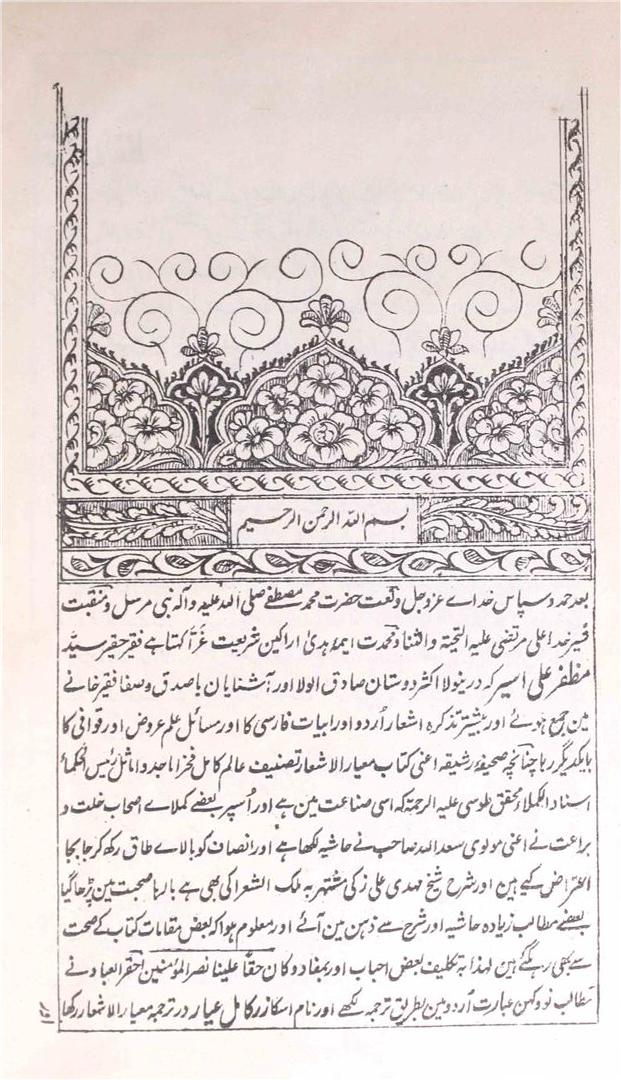 بسم اللہ الرحمن الرحیم
بعد حمد و سپاس خداے عز و جل و نعت حضرت محمد مصطفے صلی اللہ علیہ و آلہ نبی مرسل و منقبت
شیر خدا علی مرتضی علیہ التحیۃ و الثنا و محمدت ایمہ ہدیٰ اراکین شریعت غرّا کہتا ہے فقیر حقیر سیّد
مظفر علی اسیر کہ درینولا اکثر دوستان صادق الولا اور آشنایان باصدق و صفا فقیر خانے
مین جمع ہوئے اور بیشتر تذکرہ اشعار اُردو اور ابیات فارسی کا اور مسائل علم عروض اور قوافی کا
بایکدیگر رہا چنانچہ صحیفۂ رشیقہ اعنی کتاب معیار الاشعار تصنیف عالم کامل فخر اماجد و اماثل رئیس الحکمائ
استاد الکملا محقق طوسی علیہ الرحمۃ کہ اسی صناعت مین ہے اور اُسپر بعضے کملاے اصحاب و
براعت نے اعنی مولوی سعد اللہ صاحب نے حاشیہ لکھا ہے اور انصاف کو بالاے طاق رکھ کر جابجا
اعتراض کیے ہین اور شرح شیخ مہدی علی زکی مشتہر بہ ملک الشعرا کی بھی ہے بارہا صحبت مین پڑھا گیا
بعضے مطالب زیادہ حاشیہ اور شرح سے ذہن مین آئے اور معلوم ہوا کہ بعض مقامات کتاب کے صحت
سے بھی رہ گئے ہین لہذا بہ تکلیف بعض احباب اور بمفاد و کان حقّاً علینا نصر المؤمنین احقر العباد نے
مطالب نو و کہن عبارت اُردو مین بطریق ترجمہ لکھے اور نام اسکا زر کامل عیار در ترجمہ معیار الاشعار رکھا